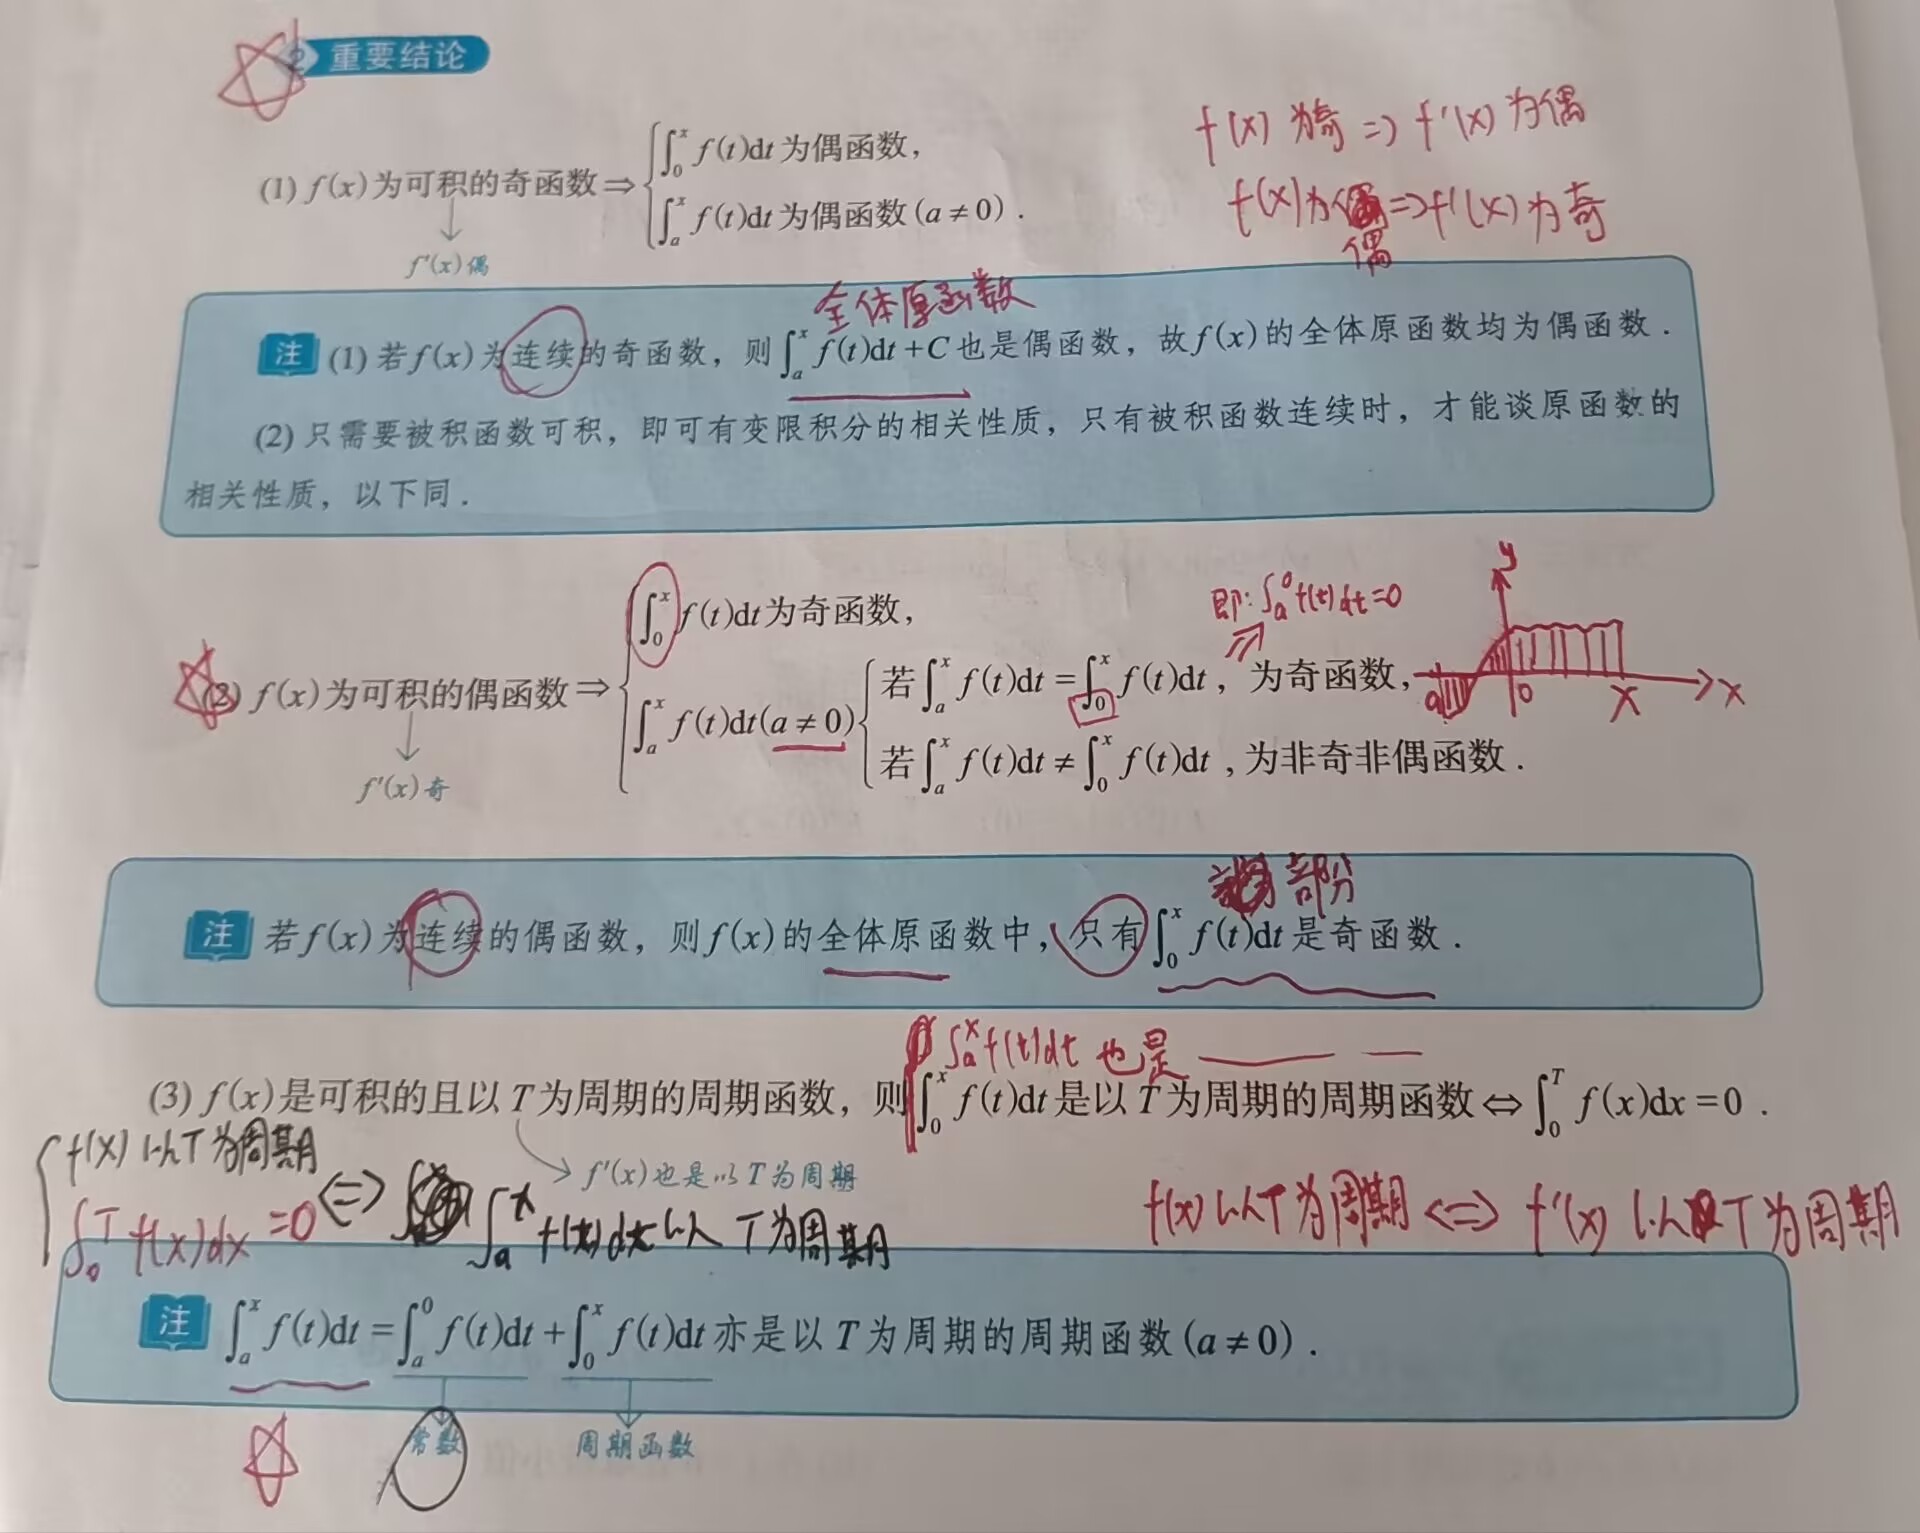 2 重要结论
f(x) 为奇 => f'(x) 为偶
(1) f(x)为可积的奇函数⇒{∫₀ˣ f(t)dt为偶函数,
∫ₐˣ f(t)dt为偶函数(a≠0).
f(x)为偶=>f'(x)为奇
偶
f'(x)偶
全体原函数
注 (1) 若f(x)为连续的奇函数，则∫ₐˣ f(t)dt+C也是偶函数，故f(x)的全体原函数均为偶函数.
(2) 只需要被积函数可积，即可有变限积分的相关性质，只有被积函数连续时，才能谈原函数的
相关性质，以下同.
即:∫ₐ⁰ f(t)dt=0
y
a 0 X x
(2) f(x)为可积的偶函数⇒{∫₀ˣ f(t)dt为奇函数,
∫ₐˣ f(t)dt(a≠0){若∫ₐˣ f(t)dt=∫₀ˣ f(t)dt，为奇函数,
若∫ₐˣ f(t)dt≠∫₀ˣ f(t)dt,为非奇非偶函数.
f'(x)奇
部分
注 若f(x)为连续的偶函数，则f(x)的全体原函数中，只有∫₀ˣ f(t)dt是奇函数.
∫ₐˣ f(t)dt 也是
(3) f(x)是可积的且以T为周期的周期函数，则∫₀ˣ f(t)dt是以T为周期的周期函数⇔∫₀ᵀ f(x)dx=0.
f'(x)也是以T为周期
{f(x)以T为周期
∫₀ᵀ f(x)dx=0 <=> ∫ₐˣ f(t)dt以T为周期
f(x)以T为周期<=>f'(x)以T为周期
注 ∫ₐˣ f(t)dt=∫ₐ⁰ f(t)dt+∫₀ˣ f(t)dt亦是以T为周期的周期函数(a≠0).
常数 周期函数